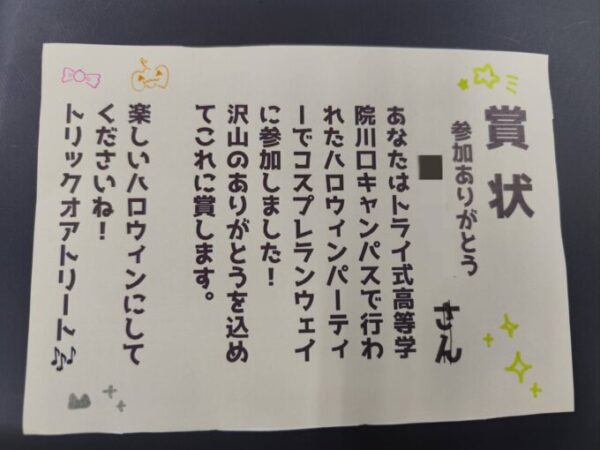 賞状
参加ありがとう
さん
あなたはトライ式高等学
院川口キャンパスで行わ
れたハロウィンパーティ
ーでコスプレランウェイ
に参加しました！
沢山のありがとうを込め
てこれに賞します。
楽しいハロウィンにして
くださいね！
トリックオアトリート🎶